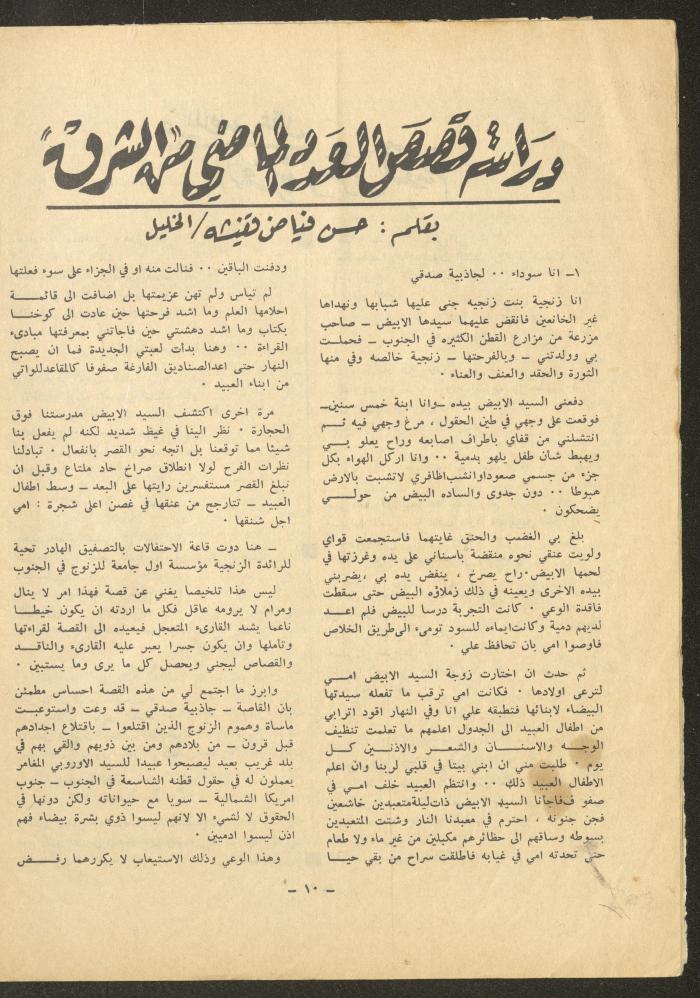 دراسة قصص العدد الماضي من "الشرق"
بقلم : حسن فياض قفيشه / الخليل
١ــ انا سوداء ٠٠ لجاذبية صدقي
انا زنجية بنت زنجيه جنى عليها شبابها ونهداها
غير الخانعين فانقض عليهما سيدها الابيض ــ صاحب
مزرعة من مزارع القطن الكثيره في الجنوب ــ فحملت
بي وولدتني ــ وبالفرحتها ــ زنجية خالصه وفي منها
الثورة والحقد والعنف والعناء ٠
دفعنى السيد الابيض بيده ــ وانا ابنة خمس سنين ــ
فوقعت على وجهي في طين الحقول ، مرغ وجهي فيه ثم
انتشلني من قفاي باطراف اصابعه وراح يعلو بي
ويهبط شان طفل يلهو بدمية ٠٠ وانا اركل الهواء بكل
جزء من جسمي صعودا وانشب اظافري لاتشبت بالارض
هبوطا ٠٠ دون جدوى والساده البيض من حولي
يضحكون ٠
بلغ بي الغضب والحنق غايتهما فاستجمعت قواي
ولويت عنقي نحوه منقضة باسناني على يده وغرزتها في
لحمها الابيض٠ راح يصرخ ، ينفض يده بي ،يضربني
بيده الاخرى ويعينه في ذلك زملاؤه البيض حتى سقطت
فاقدة الوعي ٠ كانت التجربة درسا للبيض فلم اعد
لديهم دمية وكانت ايماءه للسود تومىء الى طريق الخلاص
فاوصوا امي بان تحافظ علي ٠
ثم حدث ان اختارت زوجة السيد الابيض امي
لترعى اولادها ٠ فكانت امي ترقب ما تفعله سيدتها
البيضاء لابنائها فتطبقه علي انا وفي النهار اقود اترابي
من اطفال العبيد الى الجدول اعلمهم ما تعلمت تنظيف
الوجه والاسنان والشعر والاذنين كل
يوم ٠ طلبت مني ان ابني بيتا في قلبي لربنا وان اعلم
الاطفال العبيد ذلك ٠٠ وانتظم العبيد خلف امي في
صفو ففاجانا السيد الابيض ذات ليلة متعبدين خاشعين
فجن جنونه ، احترم في معبدنا النار وشتت المتعبدين
بسوطه وساقهم الى حظائرهم مكبلين من غير ماء ولا طعام
حتى تحدته امي في غيابه فاطلقت سراح من بقي حيا
ودفنت الباقين ٠٠ فنالت منه او في الجزاء على سوء فعلتها
لم تياس ولم تهن عزيمتها بل اضافت الى قائمة
احلامها العلم وما اشد فرحتها حين عادت الى كوخنا
بكتاب وما اشد دهشتي حين فاجاتني بمعرفتها مبادىء
القراءة ٠٠ وهنا بدأت لعبتي الجديدة فما ان يصبح
النهار حتى اعد الصناديق الفارغة صفوفا كالمقاعد للواتي
من ابناء العبيد ٠
مرة اخرى اكتشف السيد الابيض مدرستنا فوق
الحجارة ٠ نظر الينا في غيظ شديد لكنه لم يفعل بنا
شيئا مما توقعنا بل اتجه نحو القصر بانفعال ٠ تبادلنا
نظرات الفرح لولا انطلاق صراخ حاد ملتاع وقبل ان
نبلغ القصر مستفسرين رايتها على البعد ــ وسط اطفال
العبيد ــ تتارجح من عنقها في غصن اعلى شجرة : امي
اجل شنقها ٠
ــ هنا دوت قاعة الاحتفالات بالتصفيق الهادر تحية
للرائدة الزنجية مؤسسة اول جامعة للزنوج في الجنوب
ليس هذا تلخيصا يغني عن قصة فهذا امر لا ينال
ومرام لا يرومه عاقل فكل ما اردته ان يكون خيطا
ناعما يشد القارىء المتعجل فيعيده الى القصة لقراءتها
وتاملها وان يكون جسرا يعبر عليه القارىء والناقد
والقصاص ليجني ويحصل كل ما يرى وما يستبين ٠
وابرز ما اجتمع لي من هذه القصة احساس مطمئن
بان القاصة ــ جاذبية صدقي ــ قد وعت واستوعبت
ماساة وهموم الزنوج الذين اقتلعوا ــ باقتلاع اجدادهم
قبل قرون ــ من بلادهم ومن بين ذويهم والقي بهم في
بلد غريب بعيد ليصبحوا عبيدا للسيد الاوروبي المغامر
يعملون له في حقول قطنه الشاسعة في الجنوب ــ جنوب
امريكا الشمالية ــ سويا مع حيواناته ولكن دونها في
الحقوق لا لشيء الا لانهم ليسوا ذوي بشرة بيضاء فهم
اذن ليسوا ادميين ٠
وهذا الوعي وذلك الاستيعاب لا يكررهما رفض
ــ ١٠ ــ